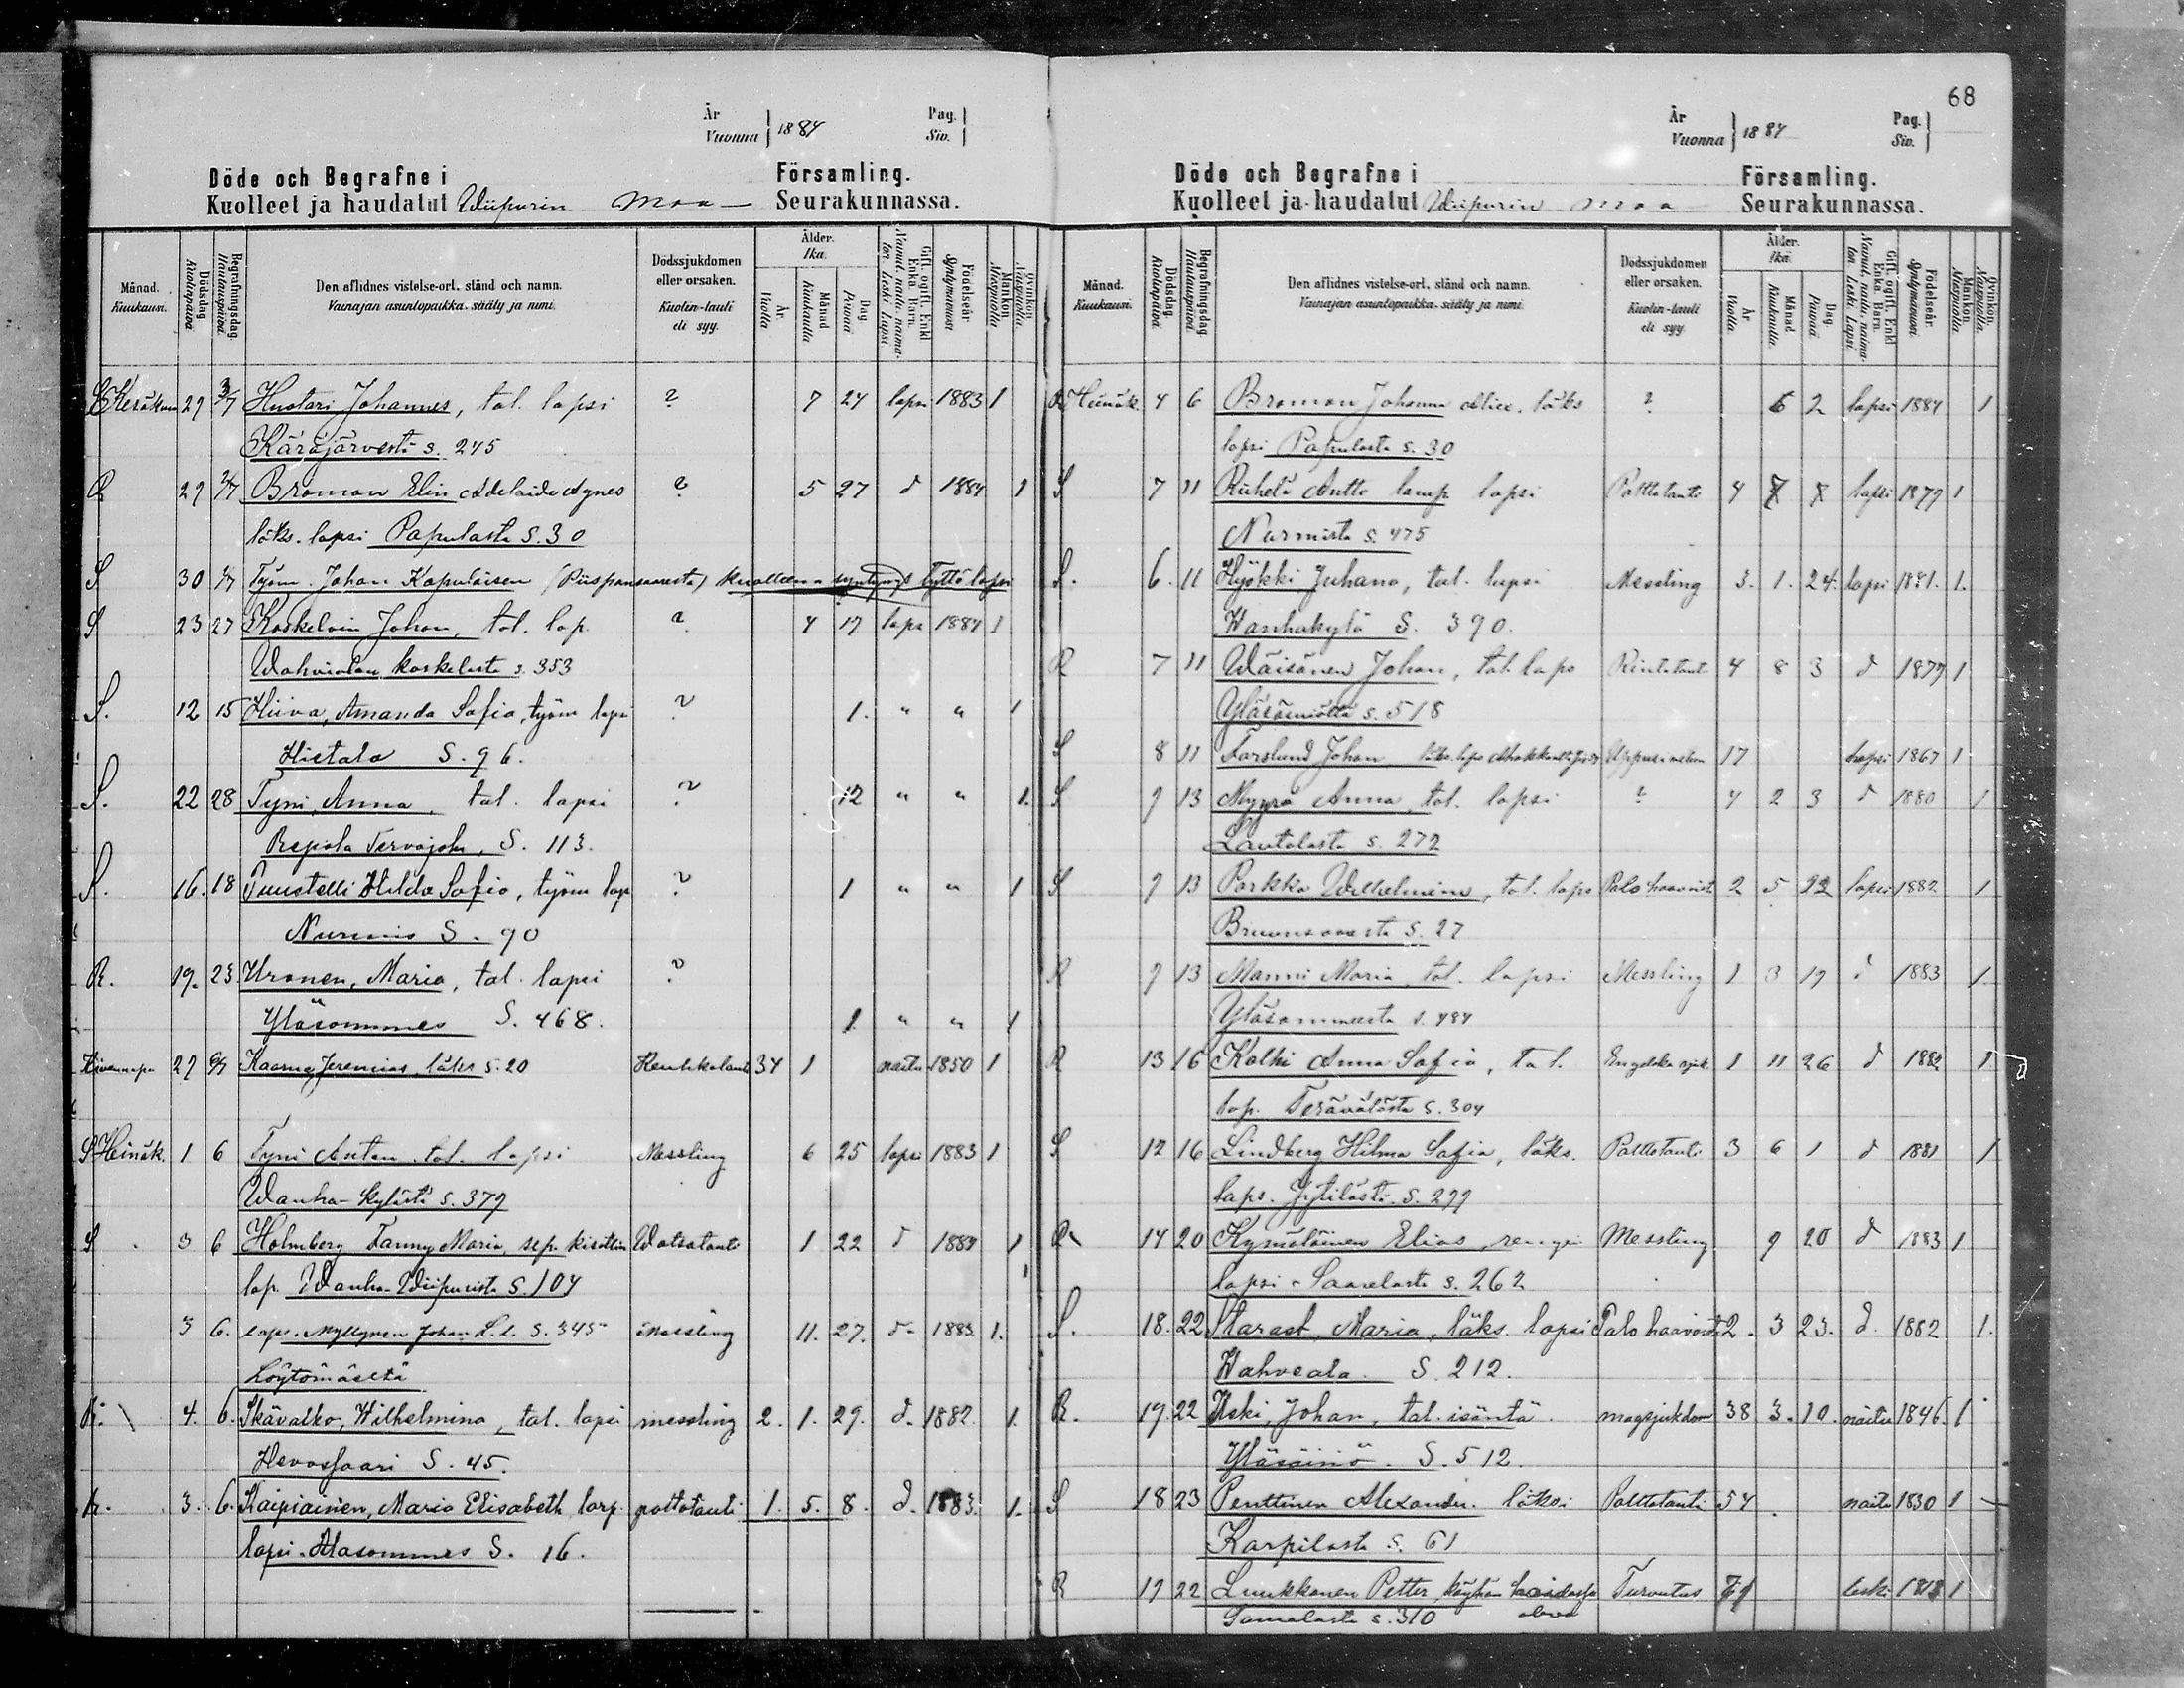 År
Vuonna } 1884
Pag.
Siv.
Döde och Begrafne i Församling.
Kuolleet ja haudatut Wiipurin Maa- Seurakunnassa.
Månad. Kuukausi.
Dödsdag. Kuolinpäivä.
Begrafningsdag. Hautauspäivä.
Den aflidnes vistelse-ort, stånd och namn.
Vainajan asuntopaikka, sääty ja nimi.
Dödssjukdomen eller orsaken.
Kuolin-tauti eli syy.
Ålder. Ikä.
År Vuotta
Månad Kuukautta
Dag. Päivää
Gift, ogift, Enkl. Enka. Barn.
Nainut, naitu, naimaton. Leski. Lapsi.
Födelseår. Syntymävuosi.
Mankön. Miespuolia.
Qvinkön. Naispuolia.
Kesäkuu 29 3/7 Huotari Johannes, tal. lapsi ? 7 24 lapsi 1883 1
Käräjärvestä s. 245
R 29 Broman Elin Adelaide Agnes ? 5 27 d 1884 1
läks. lapsi Papulasta S. 30
S 30 Työm. Johan Kapulaisen (Piispansaaresta) kuolleena syntynyt tyttö lapsi
S 23 27 Koskelain Johan, tal. lap. ? 4 17 laps 1884 1
Wahvialan koskelasta s. 353
S. 12 15 Hiiva, Amanda Sofia, työm lapsi ? 1. " " 1
Hietala S. 96.
S. 22 28 Tyni, Anna, tal. lapsi ? 12 " " 1.
Repola Tervajoki, S. 113.
S. 16. 18 Puustelli Hilda Sofia, työm lap ? 1 " " 1
Nurmis S. 90
R. 19. 23 Uronen, Maria, tal. lapsi ?
Yläsommes S. 468. 1. " " 1
27 Kaasng Jeremias, läks s. 20 34 1 naitu 1850 1
S Heinäk. 1 6 Tyni Anton tal. lapsi Messling 6 25 lapsi 1883 1
Wanha-kylästä S. 379
S 3 6 Holmberg Fanny Maria, sep. kisällin Watsatauti 1 22 d 1884 1
lap. Wanha-Wiipurista S. 104
3 6. laps. Myllynen Johan L. l. S. 345 messling 11. 27. d. 1883. 1.
Löytömäeltä
R. 4. 6. Skävalko, Wilhelmina, tal. lapsi messling 2. 1. 29. d. 1882. 1.
Hevossaari S. 45.
R. 3. 6. Kaipiainen, Maria Elisabeth torp. polttotauti 1. 5. 8. d. 1883. 1.
lapsi. Alasommes S. 16.
68
År
Vuonna } 1884
Pag.
Siv.
Döde och Begrafne i Församling.
Kuolleet ja haudatut Wiipurin Maa Seurakunnassa.
Månad. Kuukausi.
Dödsdag. Kuolinpäivä.
Begrafningsdag. Hautauspäivä.
Den aflidnes vistelse-ort, stånd och namn.
Vainajan asuntopaikka, sääty ja nimi.
Dödssjukdomen eller orsaken.
Kuolin-tauti eli syy.
Ålder. Ikä.
År Vuotta
Månad Kuukautta.
Dag. Päivää
Gift, ogift, Enkl. Enka. Barn.
Nainut, naitu, naimaton. Leski. Lapsi.
Födelseår. Syntymävuosi.
Mankön. Miespuolia.
Qvinkön. Naispuolia.
R Heinäk. 4 6 Broman Johanna Alice. läks ? 6 2 lapsi 1884 1
lapsi Papulasta s. 30
S 7 11 Riihelä Antto lamp lapsi Polttotauti 4 lapsi 1879 1
Nurmista s. 475
S. 6. 11 Hyökki Juhana, tal. lapsi Messling 3. 1. 24. lapsi 1881. 1.
Wanhakylä S. 390.
R 7 11 Wäisänen Johan, tal. laps Rintataut 4 8 3 d 1879 1
Yläsäiniöltä s. 518
S 8 11 Farslund Johan 17 lapsi 1867 1
S 9 13 Myyrä Anna tal. lapsi ? 4 2 3 d 1880 1
Lautalasta s. 272
S 9 13 Parkka Wilhelmina, tal. laps Palo haavoist 2 5 22 lapsi 1882 1
s. 27
R 9 13 Manni Maria tal. lapsi Messling 1 3 19 d 1883 1
Yläsommeesta s. 484
R 13 16 Kalhi Anna Sofia, tal. Engelska sjuk. 1 11 26 d 1882 1
lap. Terävälästä s. 304
S 12 16 Lindberg Hilma Sofia, läks. Polttotauti 3 6 1 d 1881 1
laps. Jytilästä s. 299
R 14 20 Kymäläinen Elias, rengin Messling 9 20 d 1883 1
lapsi - Saarelasta s. 262
S. 18. 22 Starast, Maria, läks. lapsi Palo haavoista 2. 3 23. d. 1882 1.
Wahveala. S. 212.
R. 19. 22 Uski, Johan, tal. isäntä. magsjukdom 38 3. 10. naitu 1846. 1
Yläsäiniö. S. 512.
S 18 23 Penttinen Alexander. läksi Polttotauti 54 naitu 1830 1
Karpilasta s. 61
R 19 22 Luukkanen Petter, köyhäin hoidossa Turvutus 71 leski 1813 1
Samolasta s. 310 oleva